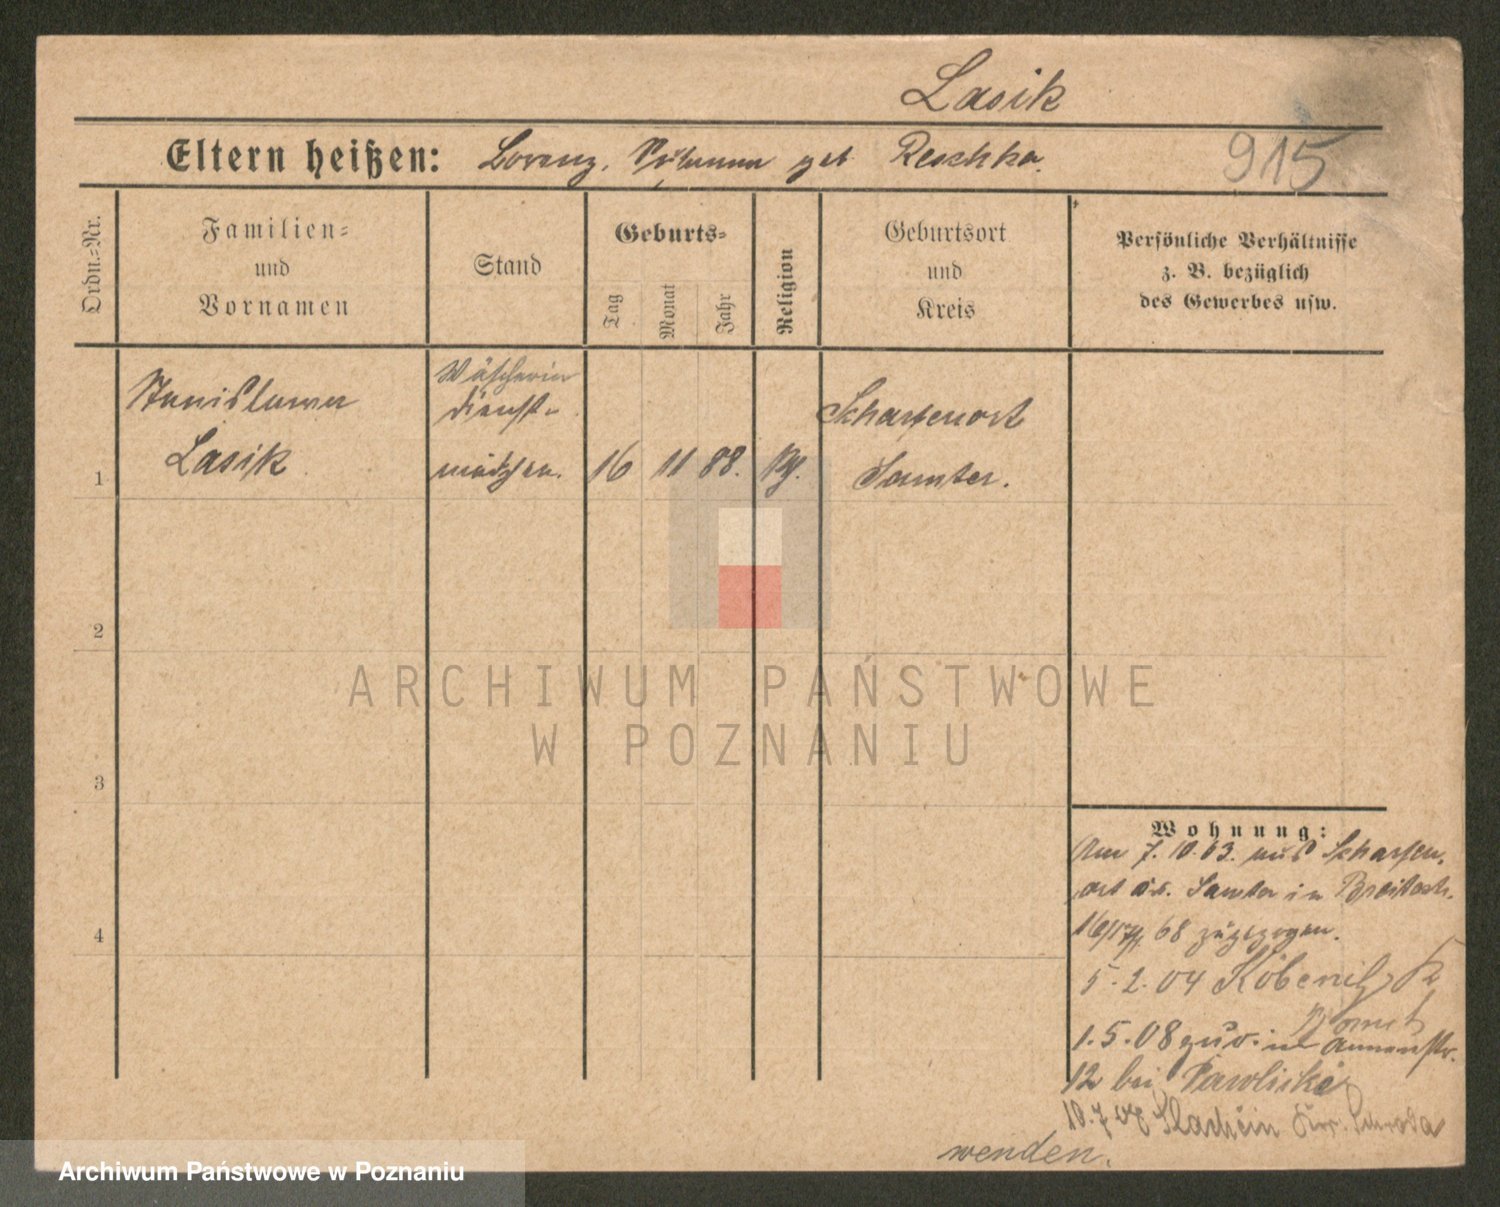 Lasik
Eltern heißen: Lorenz, geb Reschka.
915
Ordn.-Nr.
Familien-
und
Vornamen
Stand
Geburts-
Tag
Monat
Jahr
Religion
Geburtsort
und
Kreis
Persönliche Verhältnisse
z. B. bezüglich
des Gewerbes usw.
Wäscherin
Stanislawa
Dienst-
Scharfenort
1 Lasik mädchen. 16 11 88. Samter.
2
ARCHIWUM PAŃSTWOWE
W POZNANIU
3
4
Wohnung:
Am 7. 10. 03. aus Scharfen-
ort Samter in Breitestr.
68 zugezogen.
5. 2. 04
1. 5. 08 zur. in Annenstr.
12 bei Pawliski
10. 7 08 Schroda
wenden.
Archiwum Państwowe w Poznaniu